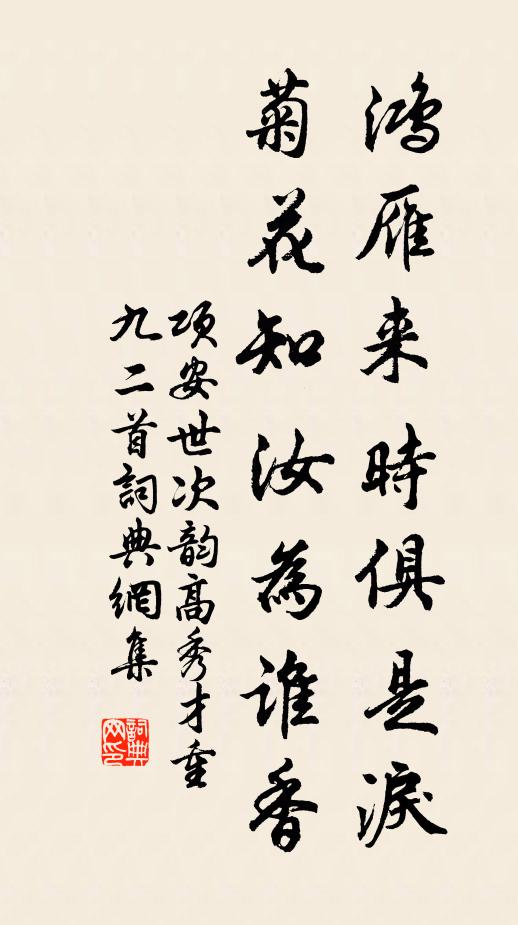 鴻雁来時俱是淚
菊花知汝為誰香
項安世次韵高秀才重
九二首詞典網集
詞典网印